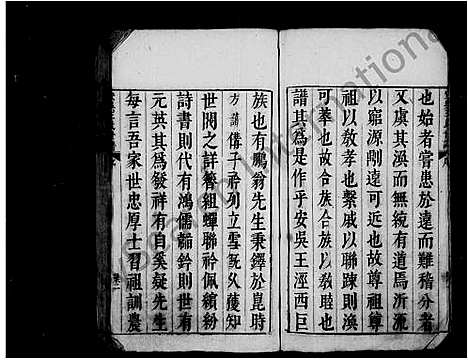 也始者嘗患於遠而難稽分者
又虞其渙而無統有道焉沂源
以窮源剛遠可近也故尊祖尊
祖以敎孝也繫戚以聯踈則渙
可萃也故合族合族以敎睦也
譜其爲是作乎安吳王涇西巨
族也有鵬翁先生秉鐸於崑時
方諭儁子衿列立雪
世閥之詳簪組蟬聯衿佩繽紛
詩書則代有鴻儒韜鈐則世有
元英其爲發祥有自奚疑先生
每言吾家世忠厚士習祖訓農